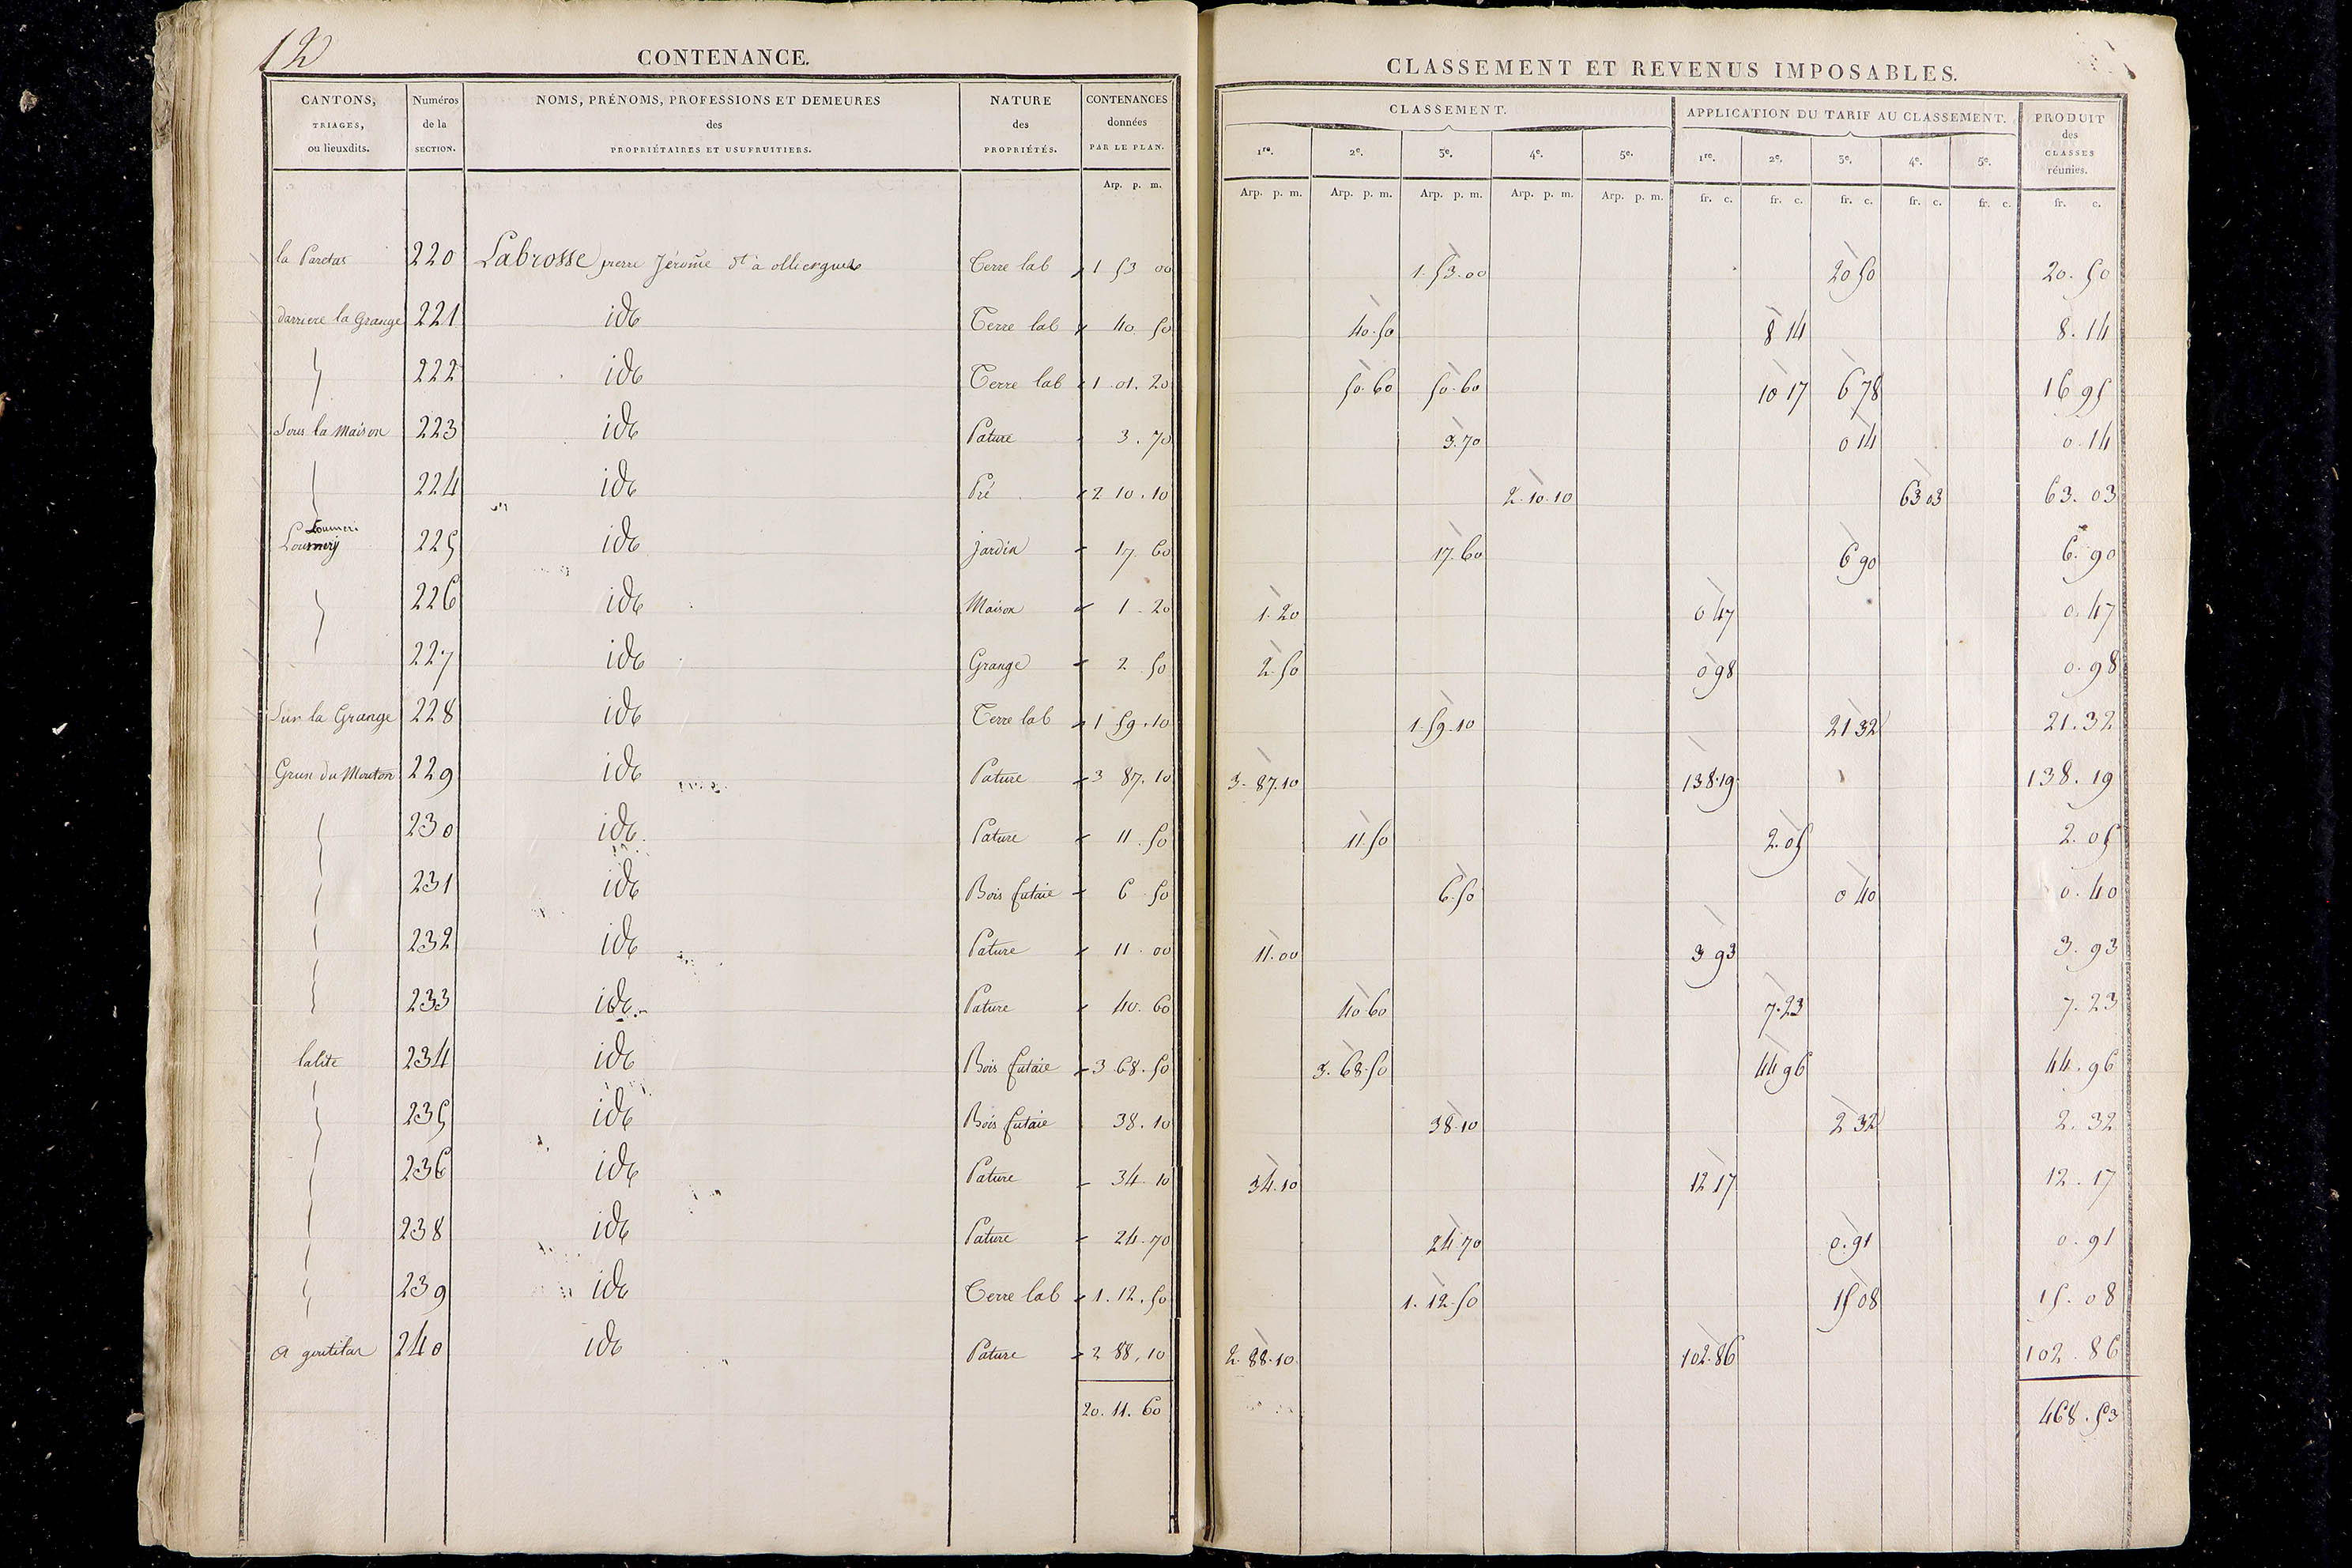 12
CONTENANCE.
CANTONS, TRIAGES, ou lieuxdits. | Numéros de la SECTION. | NOMS, PRÉNOMS, PROFESSIONS ET DEMEURES des PROPRIÉTAIRES ET USUFRUITIERS. | NATURE des PROPRIÉTÉS. | CONTENANCES données PAR LE PLAN.
Arp. p. m.
CLASSEMENT ET REVENUS IMPOSABLES.
CLASSEMENT. | APPLICATION DU TARIF AU CLASSEMENT. | PRODUIT des CLASSES réunies.
1re. | 2e. | 3e. | 4e. | 5e. | 1re. | 2e. | 3e. | 4e. | 5e.
Arp. p. m. | Arp. p. m. | Arp. p. m. | Arp. p. m. | Arp. p. m. | fr. c. | fr. c. | fr. c. | fr. c. | fr. c. | fr. c.
la Paretas 220 Labrosse pierre Jérome dt à olliergues Terre lab 1 53 00 | 1.53.00 | 20 50 | 20.50
darriere la Grange 221 ide Terre lab 40 50 | 40.50 | 8 14 | 8.14
222 ide Terre lab 1.01.20 | 50.60 | 50.60 | 10 17 | 6 78 | 16 95
Sous la Maison 223 ide Pature 3.70 | 3.70 | 0 14 | 0.14
224 ide Pré 2 10.10 | 2.10.10 | 63 03 | 63.03
Loumeri
225 ide jardin 17.60 | 17.60 | 6 90 | 6.90
226 ide Maison 1.20 | 1.20 | 0 47 | 0.47
227 ide Grange 2 50 | 2.50 | 0 98 | 0.98
Sur la Grange 228 ide Terre lab 1 59.10 | 1.59.10 | 21 32 | 21.32
Grun du Mouton 229 ide Pature 3 87.10 | 3.87.10 | 138.19 | 138.19
230 ide Pature 11.50 | 11.50 | 2.05 | 2.05
231 ide Bois futaie 6 50 | 6.50 | 0 40 | 0.40
232 ide Pature 11.00 | 11.00 | 3 93 | 3.93
233 ide Pature 40.60 | 40.60 | 7.23 | 7.23
lalite 234 ide Bois futaie 3.68.50 | 3.68.50 | 44 96 | 44.96
235 ide Bois futaie 38.10 | 38.10 | 2 32 | 2.32
236 ide Pature 34.10 | 34.10 | 12 17 | 12.17
238 ide Pature 24.70 | 24.70 | 0.91 | 0.91
239 ide Terre lab 1.12.50 | 1.12.50 | 15 08 | 15.08
a goutilas 240 ide Pature 2 88.10 | 2.88.10 | 102.86 | 102.86
20.11.60 | 468.53